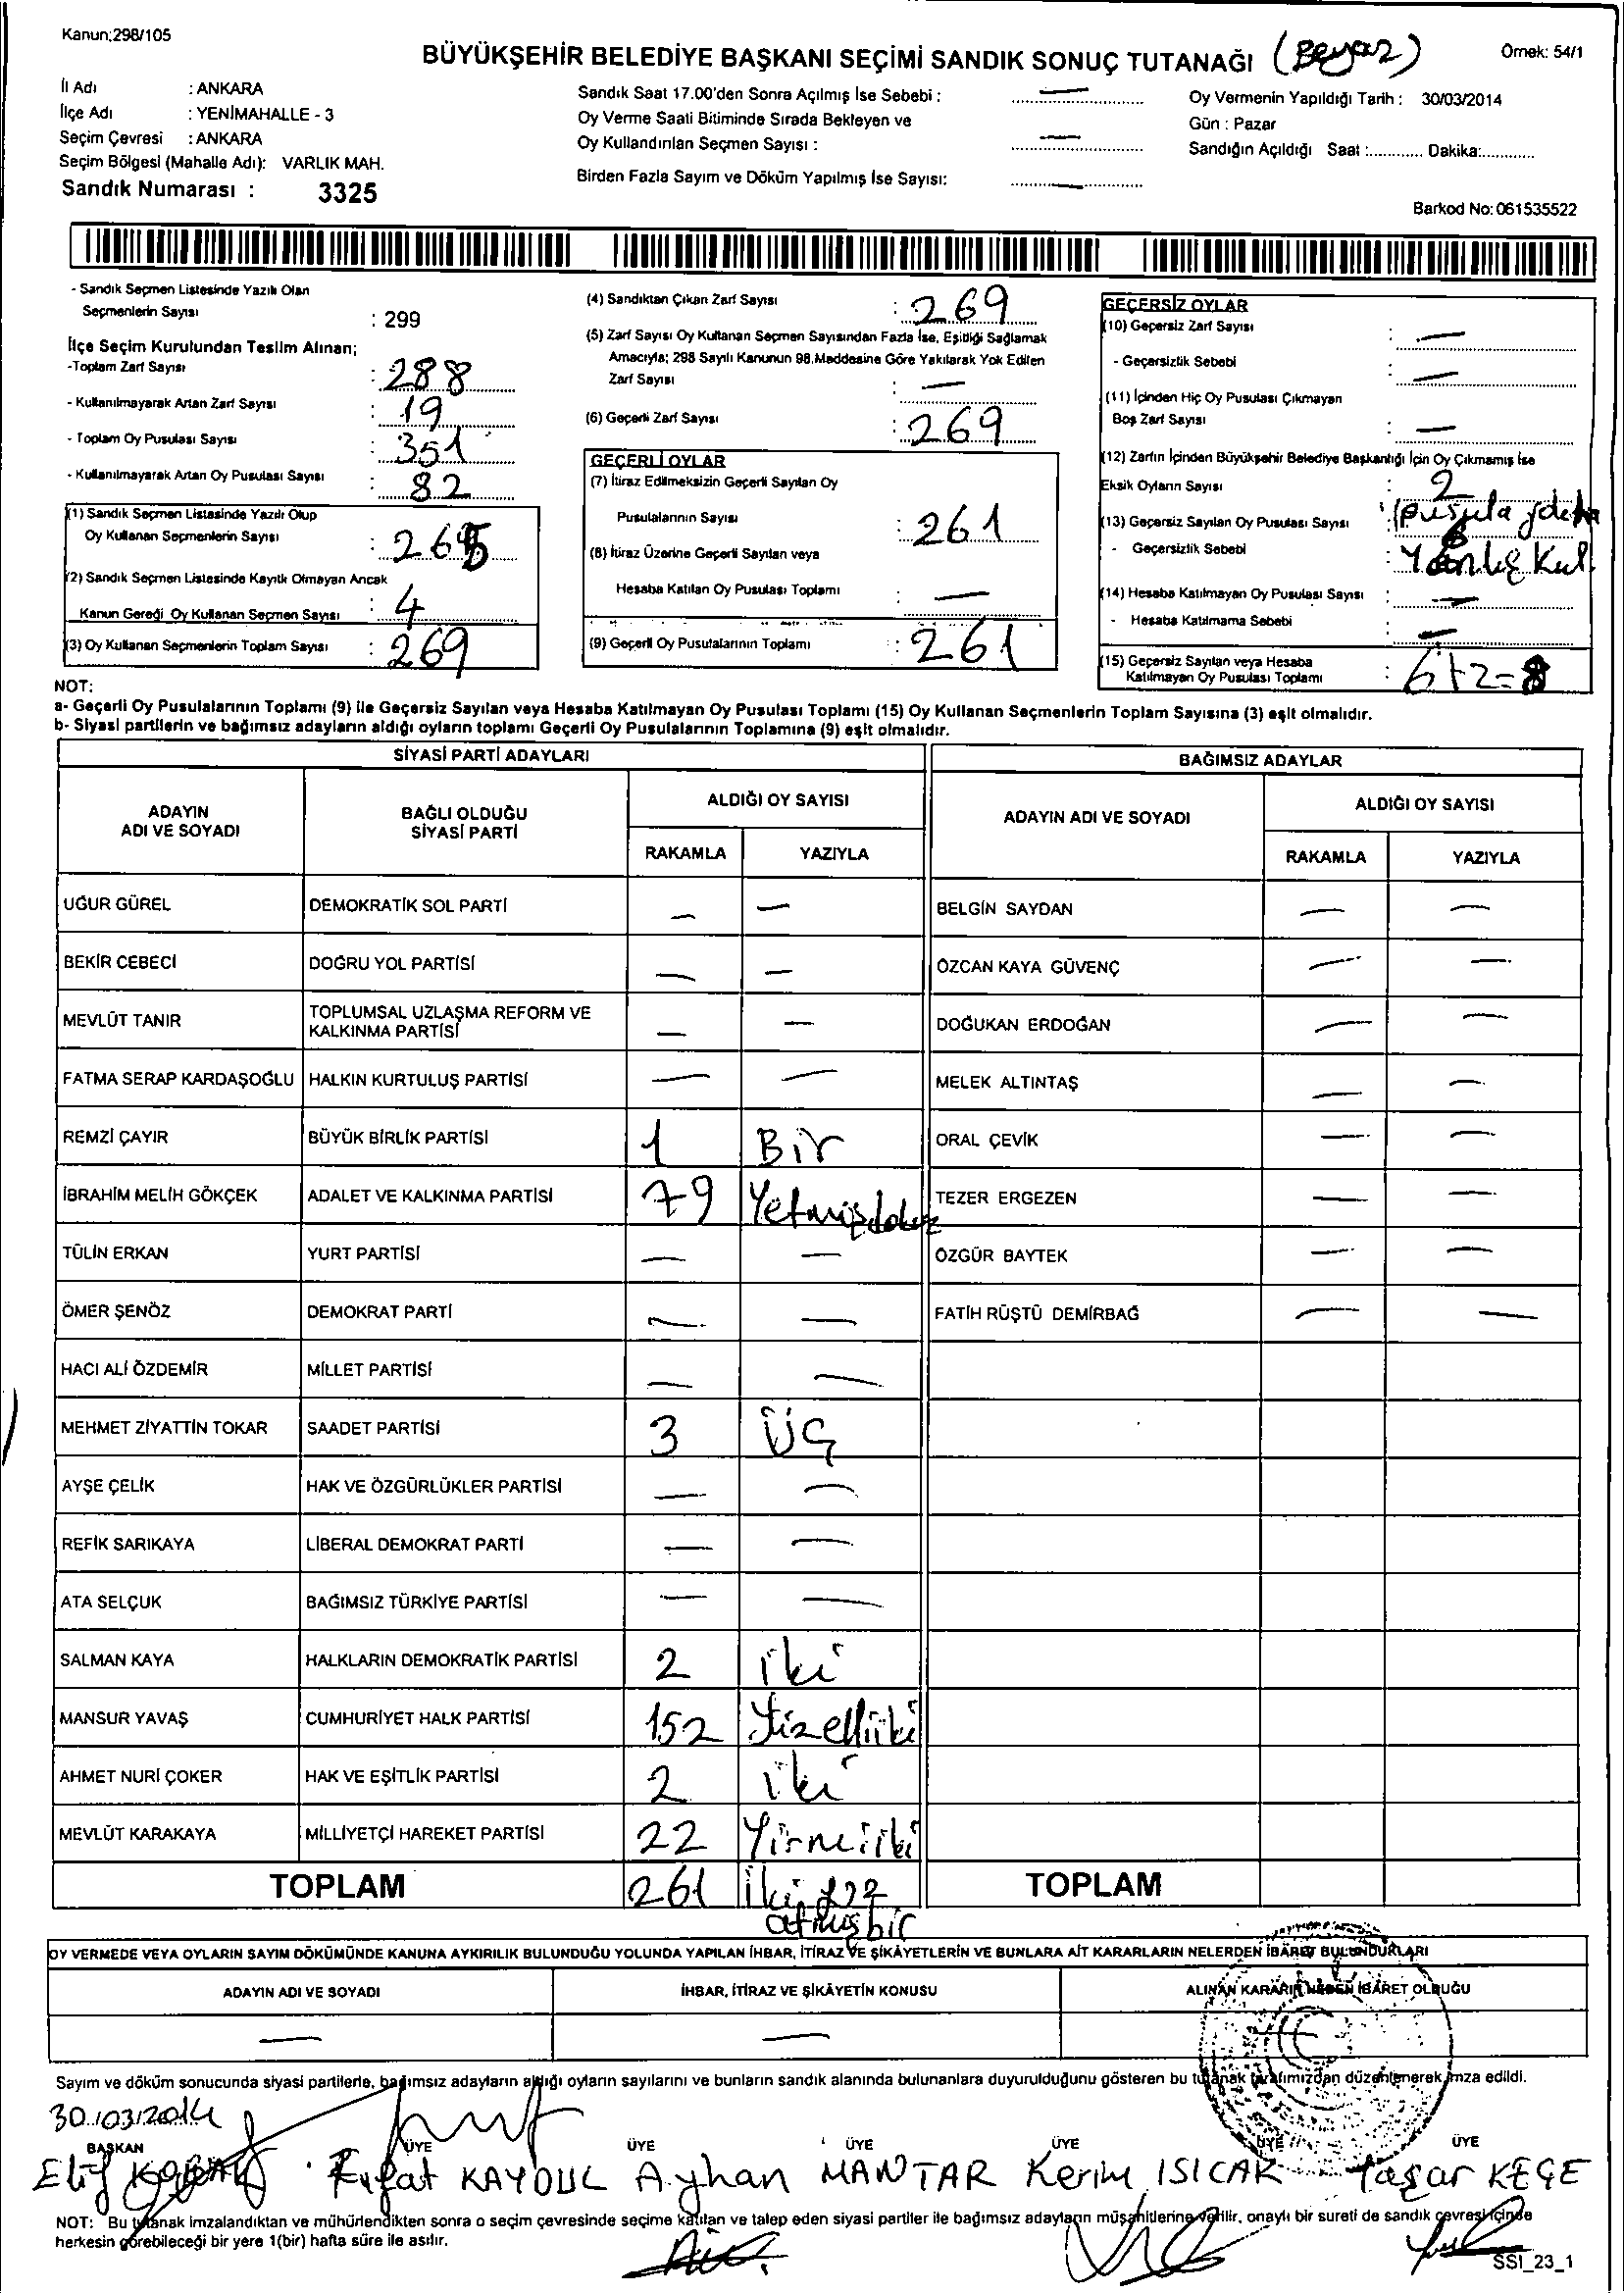 Kanun;298/105
BÜYÜKŞEHİR BELEDİYE BAŞKANI SEÇİMİ SANDIK SONUÇ TUTANAĞI (Beyaz)
Örnek: 54/1
İl Adı : ANKARA
İlçe Adı : YENİMAHALLE - 3
Seçim Çevresi : ANKARA
Seçim Bölgesi (Mahalle Adı): VARLIK MAH.
Sandık Numarası : 3325
Sandık Saat 17.00'den Sonra Açılmış İse Sebebi : —
Oy Verme Saati Bitiminde Sırada Bekleyen ve
Oy Kullandırılan Seçmen Sayısı : —
Birden Fazla Sayım ve Döküm Yapılmış İse Sayısı: —
Oy Vermenin Yapıldığı Tarih : 30/03/2014
Gün : Pazar
Sandığın Açıldığı Saat :............ Dakika:............
Barkod No: 061535522
- Sandık Seçmen Listesinde Yazılı Olan
Seçmenlerin Sayısı : 299
İlçe Seçim Kurulundan Teslim Alınan;
-Toplam Zarf Sayısı : 288
- Kullanılmayarak Artan Zarf Sayısı : 19
- Toplam Oy Pusulası Sayısı : 351
- Kullanılmayarak Artan Oy Pusulası Sayısı : 82
(1) Sandık Seçmen Listesinde Yazılı Olup
Oy Kullanan Seçmenlerin Sayısı : 265
(2) Sandık Seçmen Listesinde Kayıtlı Olmayan Ancak
Kanun Gereği Oy Kullanan Seçmen Sayısı : 4
(3) Oy Kullanan Seçmenlerin Toplam Sayısı : 269
(4) Sandıktan Çıkan Zarf Sayısı : 269
(5) Zarf Sayısı Oy Kullanan Seçmen Sayısından Fazla İse, Eşitliği Sağlamak
Amacıyla; 298 Sayılı Kanunun 98.Maddesine Göre Yakılarak Yok Edilen
Zarf Sayısı : —
(6) Geçerli Zarf Sayısı : 269
GEÇERLİ OYLAR
(7) İtiraz Edilmeksizin Geçerli Sayılan Oy
Pusulalarının Sayısı : 261
(8) İtiraz Üzerine Geçerli Sayılan veya
Hesaba Katılan Oy Pusulası Toplamı : —
(9) Geçerli Oy Pusulalarının Toplamı : 261
GEÇERSİZ OYLAR
(10) Geçersiz Zarf Sayısı : —
- Geçersizlik Sebebi : —
(11) İçinden Hiç Oy Pusulası Çıkmayan
Boş Zarf Sayısı : —
(12) Zarfın İçinden Büyükşehir Belediye Başkanlığı İçin Oy Çıkmamış İse
Eksik Oyların Sayısı : 2
(pusula
(13) Geçersiz Sayılan Oy Pusulası Sayısı : 6
- Geçersizlik Sebebi : Yanlış Kul.
(14) Hesaba Katılmayan Oy Pusulası Sayısı : —
- Hesaba Katılmama Sebebi : —
(15) Geçersiz Sayılan veya Hesaba
Katılmayan Oy Pusulası Toplamı : 6+2=8
NOT:
a- Geçerli Oy Pusulalarının Toplamı (9) ile Geçersiz Sayılan veya Hesaba Katılmayan Oy Pusulası Toplamı (15) Oy Kullanan Seçmenlerin Toplam Sayısına (3) eşit olmalıdır.
b- Siyasi partilerin ve bağımsız adayların aldığı oyların toplamı Geçerli Oy Pusulalarının Toplamına (9) eşit olmalıdır.
SİYASİ PARTİ ADAYLARI BAĞIMSIZ ADAYLAR
ADAYIN ADI VE SOYADI BAĞLI OLDUĞU SİYASİ PARTİ ALDIĞI OY SAYISI ADAYIN ADI VE SOYADI ALDIĞI OY SAYISI
RAKAMLA YAZIYLA RAKAMLA YAZIYLA
UĞUR GÜREL DEMOKRATİK SOL PARTİ — — BELGİN SAYDAN — —
BEKİR CEBECİ DOĞRU YOL PARTİSİ — — ÖZCAN KAYA GÜVENÇ — —
MEVLÜT TANIR TOPLUMSAL UZLAŞMA REFORM VE KALKINMA PARTİSİ — — DOĞUKAN ERDOĞAN — —
FATMA SERAP KARDAŞOĞLU HALKIN KURTULUŞ PARTİSİ — — MELEK ALTINTAŞ — —
REMZİ ÇAYIR BÜYÜK BİRLİK PARTİSİ 1 Bir ORAL ÇEVİK — —
İBRAHİM MELİH GÖKÇEK ADALET VE KALKINMA PARTİSİ 79 Yetmişdokuz TEZER ERGEZEN — —
TÜLİN ERKAN YURT PARTİSİ — — ÖZGÜR BAYTEK — —
ÖMER ŞENÖZ DEMOKRAT PARTİ — — FATİH RÜŞTÜ DEMİRBAĞ — —
HACI ALİ ÖZDEMİR MİLLET PARTİSİ — —
MEHMET ZİYATTİN TOKAR SAADET PARTİSİ 3 ÜÇ
AYŞE ÇELİK HAK VE ÖZGÜRLÜKLER PARTİSİ — —
REFİK SARIKAYA LİBERAL DEMOKRAT PARTİ — —
ATA SELÇUK BAĞIMSIZ TÜRKİYE PARTİSİ — —
SALMAN KAYA HALKLARIN DEMOKRATİK PARTİSİ 2 iki
MANSUR YAVAŞ CUMHURİYET HALK PARTİSİ 152 Yüzelliiki
AHMET NURİ ÇOKER HAK VE EŞİTLİK PARTİSİ 2 iki
MEVLÜT KARAKAYA MİLLİYETÇİ HAREKET PARTİSİ 22 Yirmiiki
TOPLAM 261 İkiyüz TOPLAM
atmışbir
OY VERMEDE VEYA OYLARIN SAYIM DÖKÜMÜNDE KANUNA AYKIRILIK BULUNDUĞU YOLUNDA YAPILAN İHBAR, İTİRAZ VE ŞİKÂYETLERİN VE BUNLARA AİT KARARLARIN NELERDEN İBARET BULUNDUKLARI
ADAYIN ADI VE SOYADI İHBAR, İTİRAZ VE ŞİKÂYETİN KONUSU ALINAN KARARIN NEDEN İBARET OLDUĞU
— — —
Sayım ve döküm sonucunda siyasi partilerle, bağımsız adayların aldığı oyların sayılarını ve bunların sandık alanında bulunanlara duyurulduğunu gösteren bu tutanak tarafımızdan düzenlenerek imza edildi.
30/03/2014
BAŞKAN ÜYE ÜYE ÜYE ÜYE ÜYE ÜYE
Elif Rıfat KAYDUL Ayhan MANTAR Kerim ISICAK Yaşar KEÇE
NOT: Bu tutanak imzalandıktan ve mühürlendikten sonra o seçim çevresinde seçime katılan ve talep eden siyasi partiler ile bağımsız adayların müşahitlerine verilir, onaylı bir sureti de sandık çevresi içinde
herkesin görebileceği bir yere 1(bir) hafta süre ile asılır.
SSI_23_1